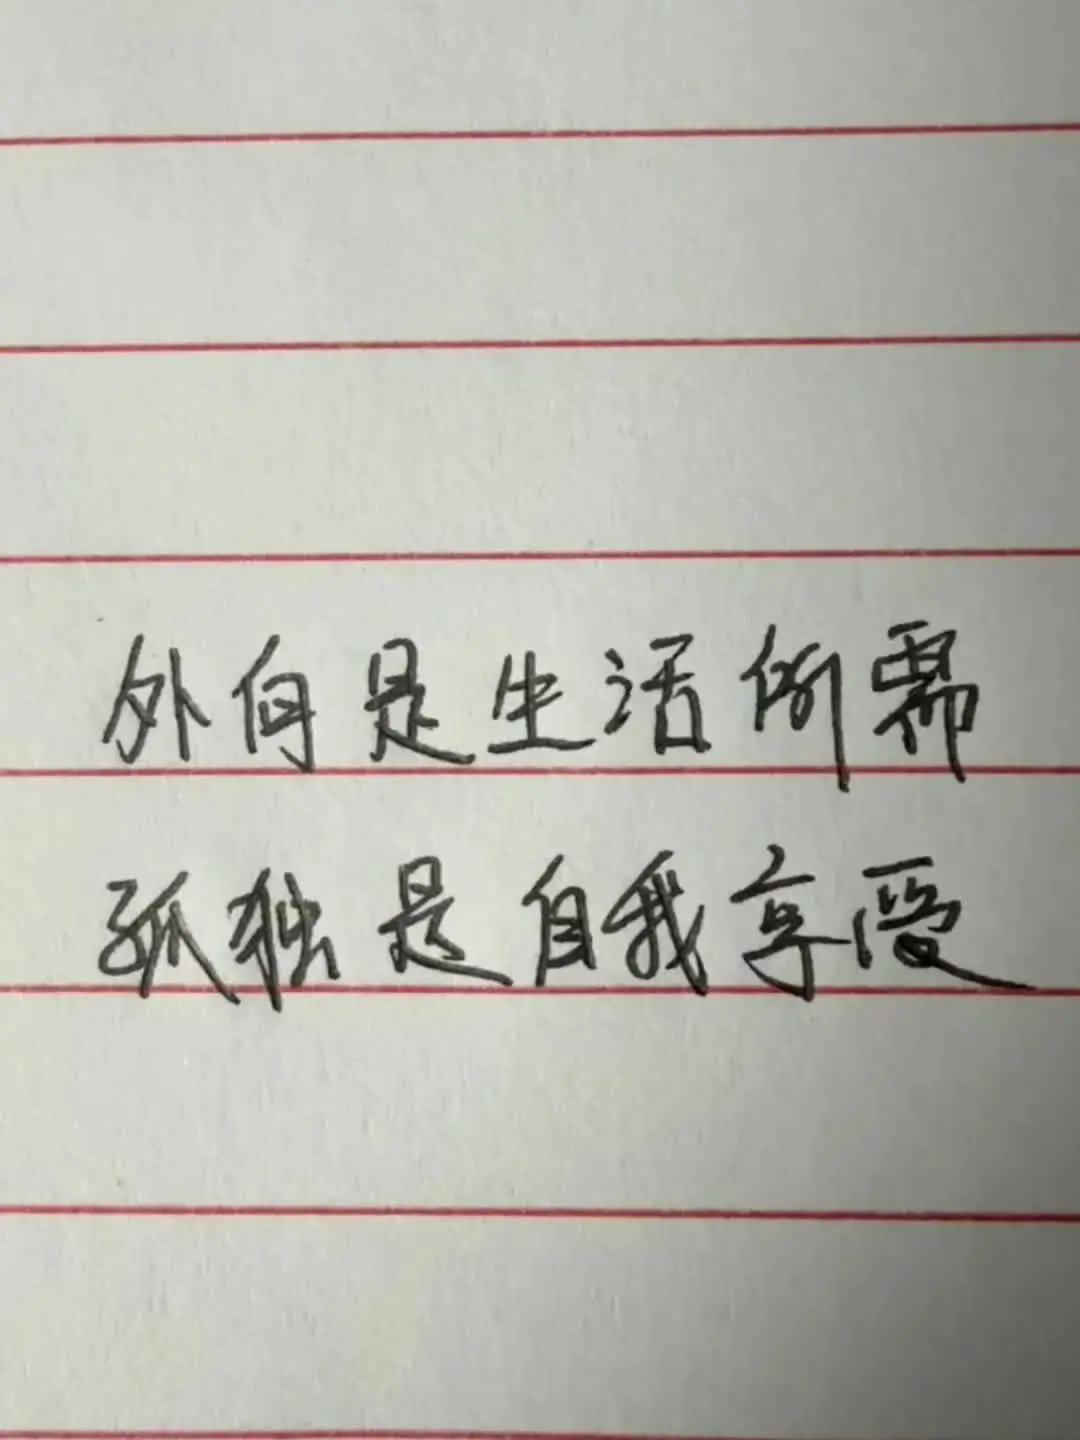 外向是生活所需
孤独是自我享受